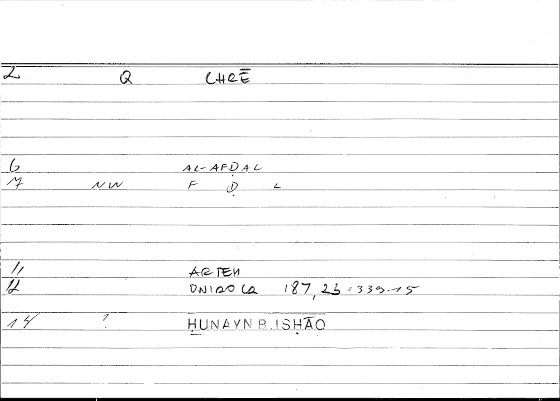 2 Q CHRĒ
6 AL-AFḌAL
7 NW F Ḍ L
11 ARTEM
12 ONIROCR 187,23=339.15
14 ? ḤUNAYN B. ISḤĀQ